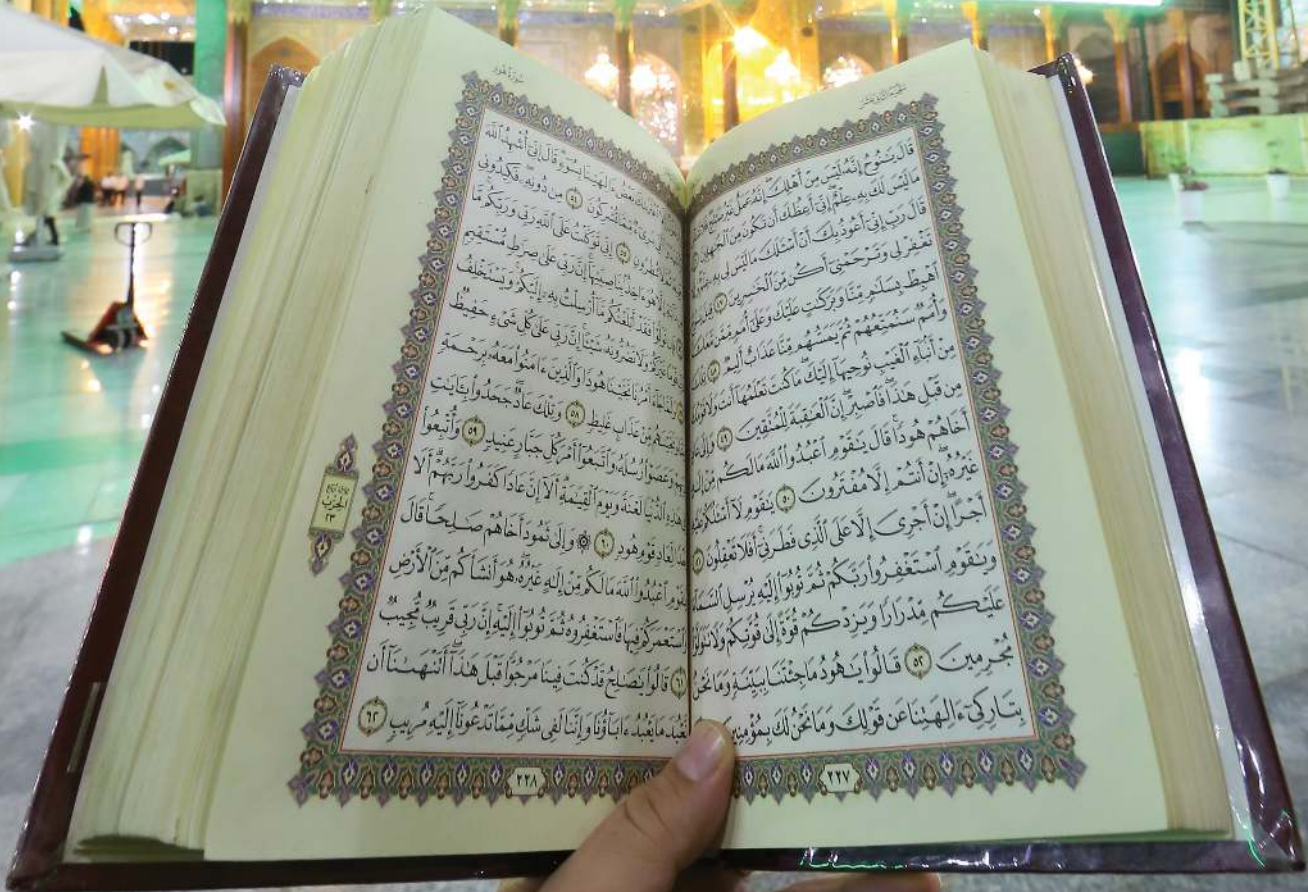 الجزء الثاني عشر
قَالَ يَٰنُوحُ إِنَّهُۥ لَيْسَ مِنْ أَهْلِكَ إِنَّهُۥ عَمَلٌ غَيْرُ صَٰلِحٍ
مَا لَيْسَ لَكَ بِهِۦ عِلْمٌ إِنِّىٓ أَعِظُكَ أَن تَكُونَ مِنَ ٱلْجَٰهِلِينَ
قَالَ رَبِّ إِنِّىٓ أَعُوذُ بِكَ أَنْ أَسْـَٔلَكَ مَا لَيْسَ لِى بِهِۦ
تَغْفِرْ لِى وَتَرْحَمْنِىٓ أَكُن مِّنَ ٱلْخَٰسِرِينَ ٤٧
ٱهْبِطْ بِسَلَٰمٍ مِّنَّا وَبَرَكَٰتٍ عَلَيْكَ وَعَلَىٰٓ أُمَمٍ مِّمَّن مَّعَكَ
وَأُمَمٌ سَنُمَتِّعُهُمْ ثُمَّ يَمَسُّهُم مِّنَّا عَذَابٌ أَلِيمٌ ٤٨ تِلْكَ
مِنْ أَنۢبَآءِ ٱلْغَيْبِ نُوحِيهَآ إِلَيْكَ مَا كُنتَ تَعْلَمُهَآ أَنتَ وَلَا قَوْمُكَ
مِن قَبْلِ هَٰذَا فَٱصْبِرْ إِنَّ ٱلْعَٰقِبَةَ لِلْمُتَّقِينَ ٤٩ وَإِلَىٰ عَادٍ
أَخَاهُمْ هُودًا قَالَ يَٰقَوْمِ ٱعْبُدُوا۟ ٱللَّهَ مَا لَكُم مِّنْ إِلَٰهٍ
غَيْرُهُۥٓ إِنْ أَنتُمْ إِلَّا مُفْتَرُونَ ٥٠ يَٰقَوْمِ لَآ أَسْـَٔلُكُمْ عَلَيْهِ
أَجْرًا إِنْ أَجْرِىَ إِلَّا عَلَى ٱلَّذِى فَطَرَنِىٓ أَفَلَا تَعْقِلُونَ ٥١
وَيَٰقَوْمِ ٱسْتَغْفِرُوا۟ رَبَّكُمْ ثُمَّ تُوبُوٓا۟ إِلَيْهِ يُرْسِلِ ٱلسَّمَآءَ
عَلَيْكُم مِّدْرَارًا وَيَزِدْكُمْ قُوَّةً إِلَىٰ قُوَّتِكُمْ وَلَا تَتَوَلَّوْا۟
مُجْرِمِينَ ٥٢ قَالُوا۟ يَٰهُودُ مَا جِئْتَنَا بِبَيِّنَةٍ وَمَا نَحْنُ
بِتَارِكِىٓ ءَالِهَتِنَا عَن قَوْلِكَ وَمَا نَحْنُ لَكَ بِمُؤْمِنِينَ
٢٢٧
سورة هود
ٱعْتَرَىٰكَ بَعْضُ ءَالِهَتِنَا بِسُوٓءٍ قَالَ إِنِّىٓ أُشْهِدُ ٱللَّهَ
بَرِىٓءٌ مِّمَّا تُشْرِكُونَ ٥٤ مِن دُونِهِۦ فَكِيدُونِى
تُنظِرُونِ ٥٥ إِنِّى تَوَكَّلْتُ عَلَى ٱللَّهِ رَبِّى وَرَبِّكُم مَّا
إِلَّا هُوَ ءَاخِذٌۢ بِنَاصِيَتِهَآ إِنَّ رَبِّى عَلَىٰ صِرَٰطٍ مُّسْتَقِيمٍ
تَوَلَّوْا۟ فَقَدْ أَبْلَغْتُكُم مَّآ أُرْسِلْتُ بِهِۦٓ إِلَيْكُمْ وَيَسْتَخْلِفُ
غَيْرَكُمْ وَلَا تَضُرُّونَهُۥ شَيْـًٔا إِنَّ رَبِّى عَلَىٰ كُلِّ شَىْءٍ حَفِيظٌ
جَآءَ أَمْرُنَا نَجَّيْنَا هُودًا وَٱلَّذِينَ ءَامَنُوا۟ مَعَهُۥ بِرَحْمَةٍ
وَنَجَّيْنَٰهُم مِّنْ عَذَابٍ غَلِيظٍ ٥٨ وَتِلْكَ عَادٌ جَحَدُوا۟ بِـَٔايَٰتِ
رَبِّهِمْ وَعَصَوْا۟ رُسُلَهُۥ وَٱتَّبَعُوٓا۟ أَمْرَ كُلِّ جَبَّارٍ عَنِيدٍ ٥٩ وَأُتْبِعُوا۟
هَٰذِهِ ٱلدُّنْيَا لَعْنَةً وَيَوْمَ ٱلْقِيَٰمَةِ أَلَآ إِنَّ عَادًا كَفَرُوا۟ رَبَّهُمْ أَلَا
بُعْدًا لِّعَادٍ قَوْمِ هُودٍ ٦٠ ۞ وَإِلَىٰ ثَمُودَ أَخَاهُمْ صَٰلِحًا قَالَ
يَٰقَوْمِ ٱعْبُدُوا۟ ٱللَّهَ مَا لَكُم مِّنْ إِلَٰهٍ غَيْرُهُۥ هُوَ أَنشَأَكُم مِّنَ ٱلْأَرْضِ
وَٱسْتَعْمَرَكُمْ فِيهَا فَٱسْتَغْفِرُوهُ ثُمَّ تُوبُوٓا۟ إِلَيْهِ إِنَّ رَبِّى قَرِيبٌ مُّجِيبٌ
٦١ قَالُوا۟ يَٰصَٰلِحُ قَدْ كُنتَ فِينَا مَرْجُوًّا قَبْلَ هَٰذَآ أَتَنْهَىٰنَآ أَن
نَّعْبُدَ مَا يَعْبُدُ ءَابَآؤُنَا وَإِنَّنَا لَفِى شَكٍّ مِّمَّا تَدْعُونَآ إِلَيْهِ مُرِيبٍ ٦٢
الحزب
٢٣
٢٢٨